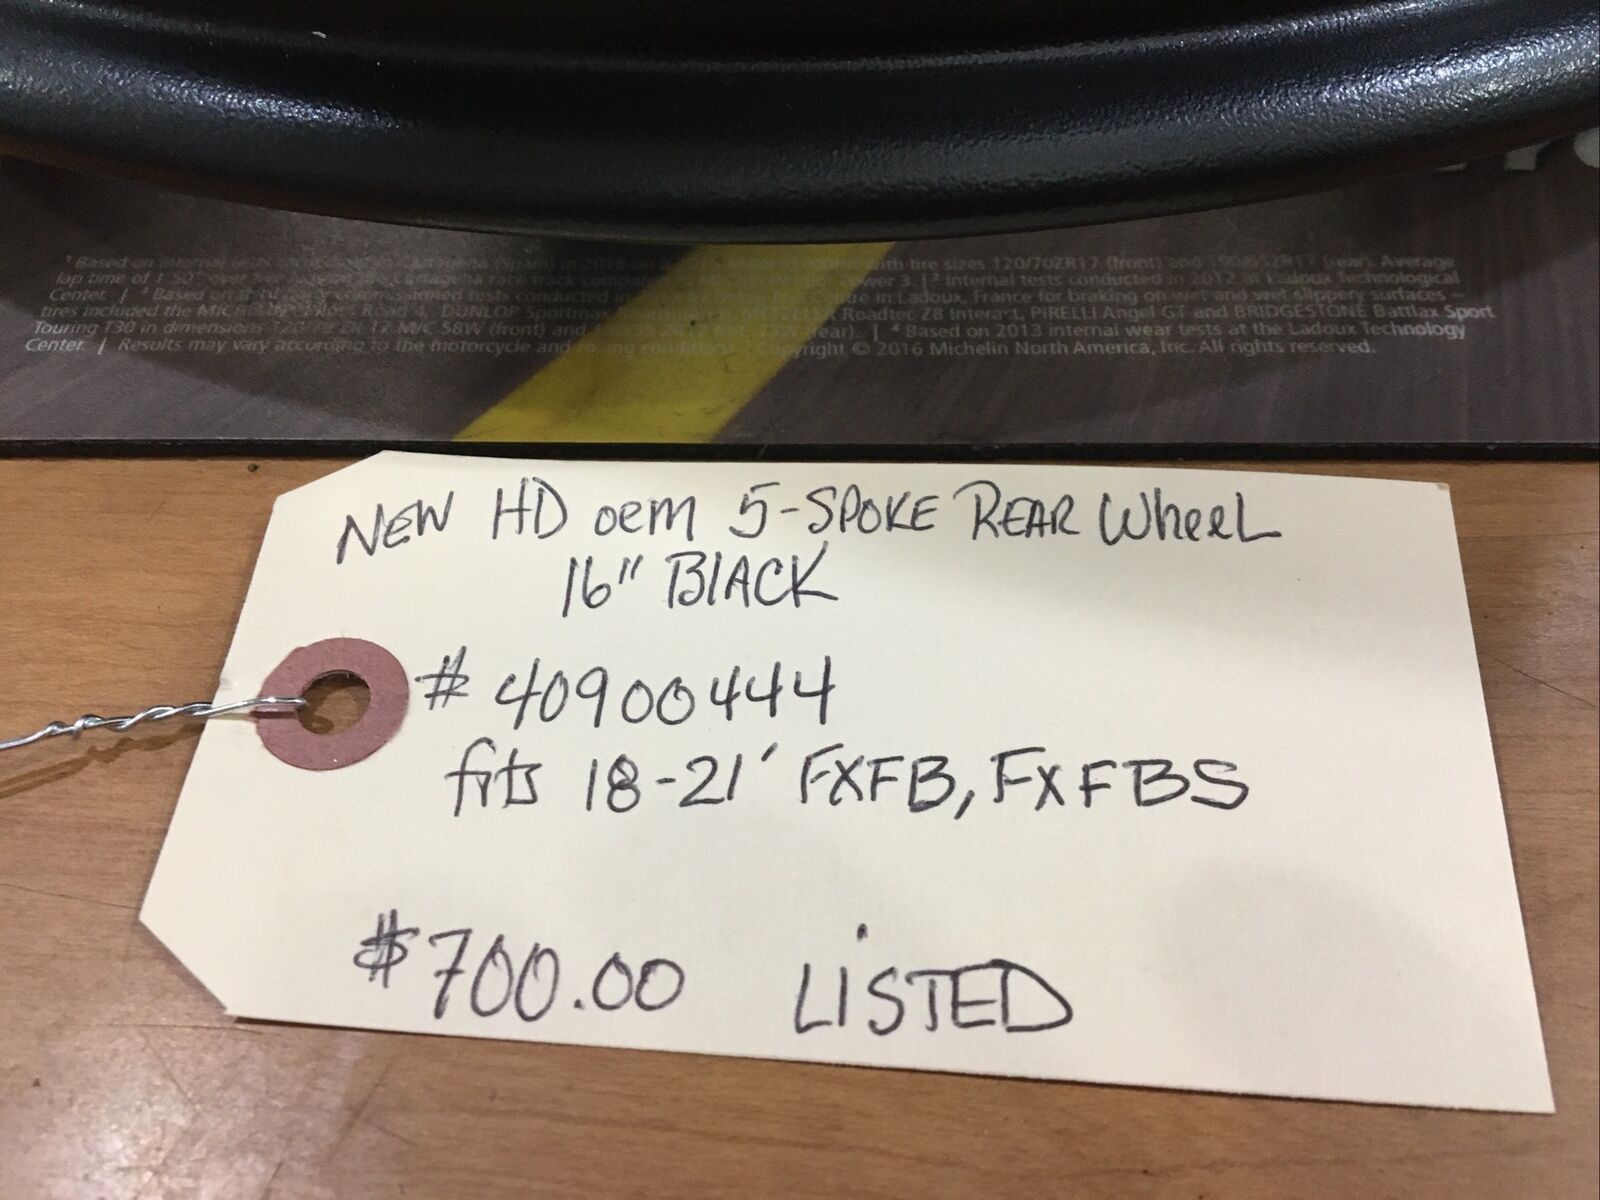 ¹ Based on internal tests (Spain) in 2016 on a with tire sizes 120/70ZR17 (front) and 190/55ZR17 (rear). Average
lap time of 1.50" over race track wer 3. | ² Internal tests conducted in 2012 at Ladoux Technological
Center. | ³ Based on commissioned tests conducted in Centre in Ladoux, France for braking on wet and wet slippery surfaces –
tires included the MICHELIN Pilot Road 4, DUNLOP Sportmax METZELER Roadtec Z8 Interact, PIRELLI Angel GT and BRIDGESTONE Battlax Sport
Touring T30 in dimensions 17 M/C 58W (front) and (rear). | ⁴ Based on 2013 internal wear tests at the Ladoux Technology
Center. | Results may vary according to the motorcycle and riding conditions. Copyright © 2016 Michelin North America, Inc. All rights reserved.
NEW HD oem 5-SPOKE REAR WheeL
16" BLACK
# 40900444
fits 18-21' FXFB, FXFBS
$700.00 LiSTED